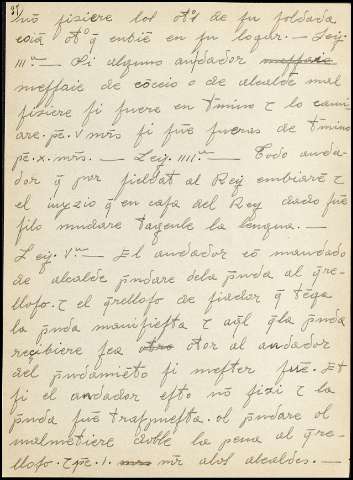 28
nõ fiziere los otºs de su soldada
coiã otº q̃ enbiẽ en su logar. — Ley.
IIIª — Si alguno andador
meſſaie de cõcio o de alcalde mal
fiziere si fuere en tmino τ lo cami
are. pe. V mrs si fue fueras de tmino
pe. x. mrs. — Ley. IIIIª — Todo anda-
dor q̃ por fieldat al Rey embiare τ
el q̃ en casa del Rey dado fue
silo mudare la lengua. —
Ley. Vª — El andador co mandado
de alcalde p̃ndare dela p̃nda al q̃re-
lloso. τ el q̃relloso de fiador q̃ tẽga
la p̃nda manifiesta τ aq̃l q̃la p̃nda
recibiere sea otro otor al andador
del p̃ndamiẽto si mester fue. Et
si el andador esto nõ fizi τ la
p̃nda fue traspuesta. ol p̃ndare ol
malmetiere doble la pena al q̃re-
lloso. τ pe. I. mr alos alcaldes. —